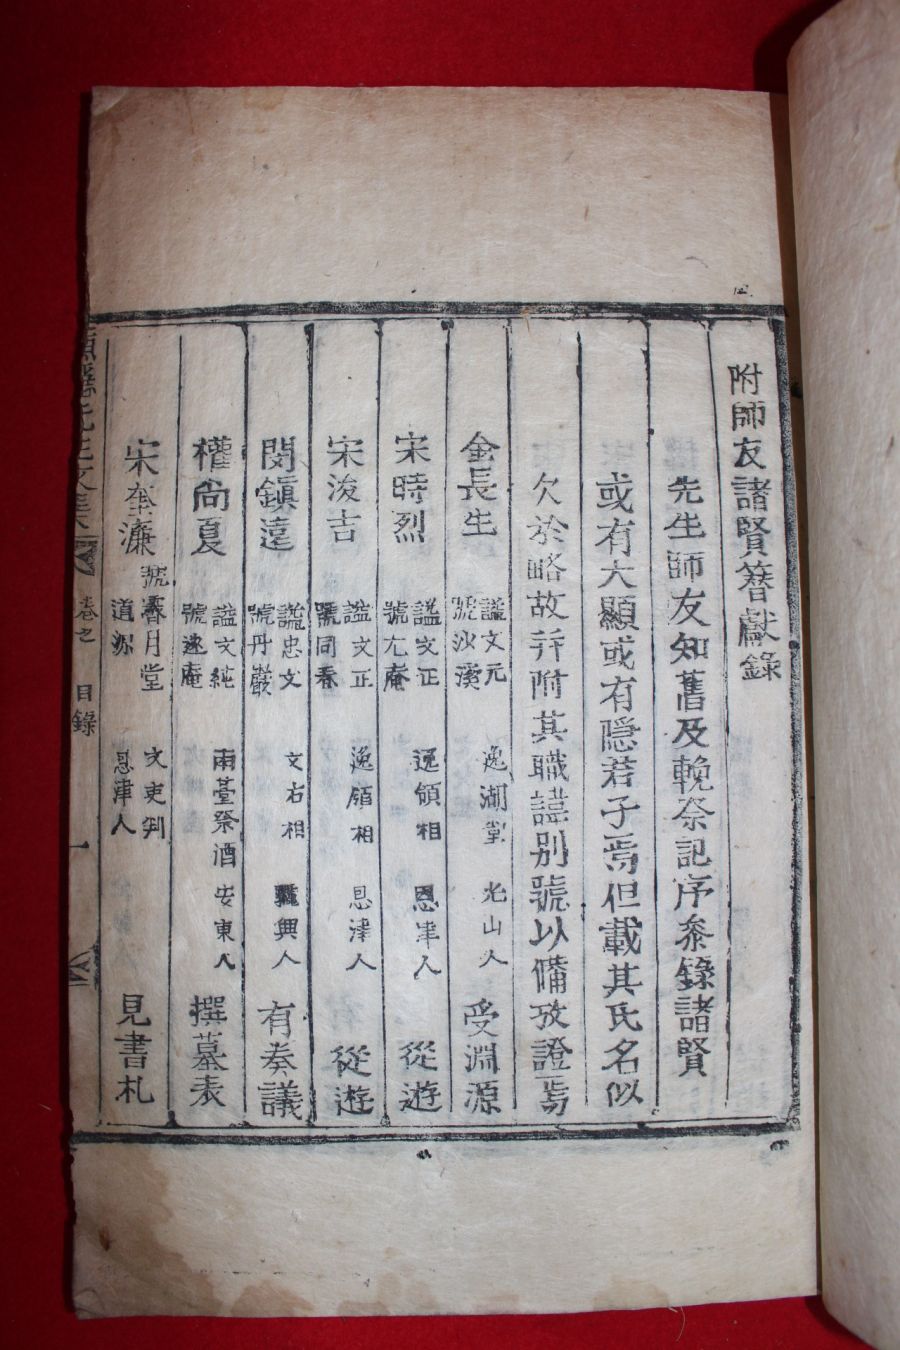 附師友諸賢簪獻錄
先生師友知舊及輓祭記序叅錄諸賢
或有大顯或有隱若子焉但載其氏名似
欠於略故幷附其職諱別號以備攷證焉
金長生 諡文元 號沙溪 逸湖堂 光山人 受淵源
宋時烈 諡文正 號尤庵 逸領相 恩津人 從遊
宋浚吉 諡文正 號同春 逸領相 恩津人 從遊
閔鎭遠 諡忠文 號丹巖 文右相 驪興人 有奏議
權尙夏 諡文純 號遂庵 兩臺祭酒 安東人 撰墓表
宋奎濂 號霽月堂 道源 文吏判 恩津人 見書札
先生文集 卷之 目錄 一